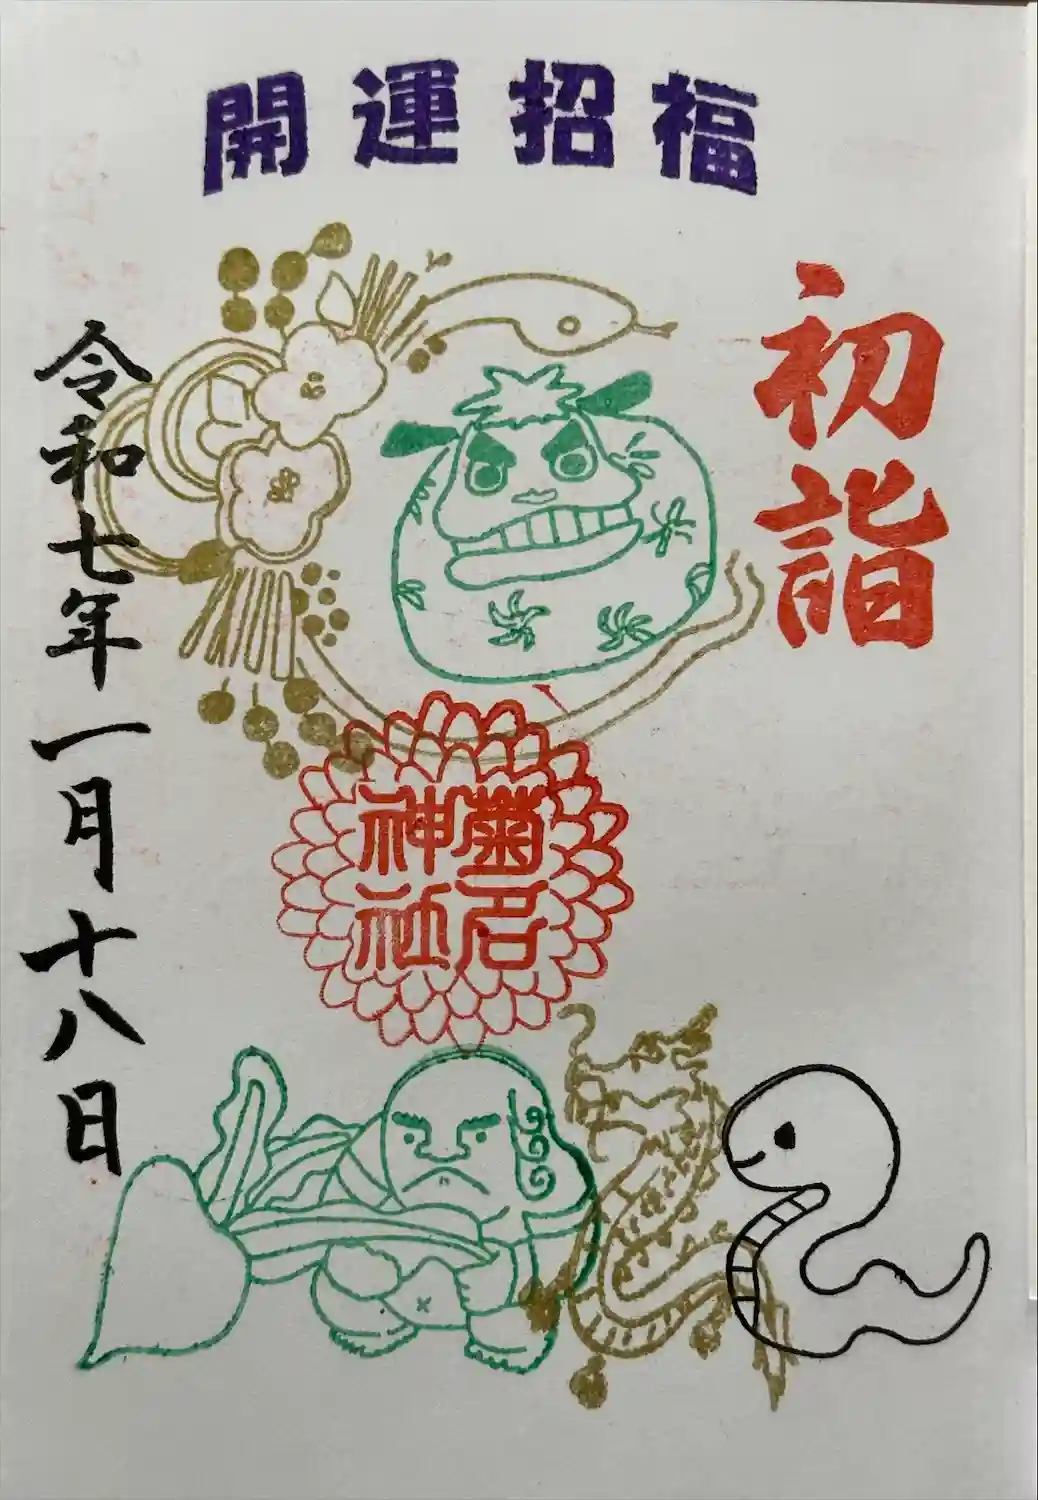 開運招福
初詣
菊名
神社
令和七年一月十八日